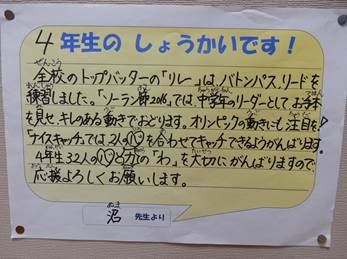 4年生のしょうかいです!
全校のトップバッターの「リレー」は、バトンパス、リードを
練習しました。「ソーラン節2016」では、中学年のリーダーとしてお手本
を見せ、キレのある動きでおどります。オリンピックの動きにも注目を!
「ナイスキャッチ」では、2人の心を合わせてキャッチできるようがんばります。
4年生32人の心と力の「わ」を大切にがんばりますので、
応援よろしくお願いします。
沼 先生より